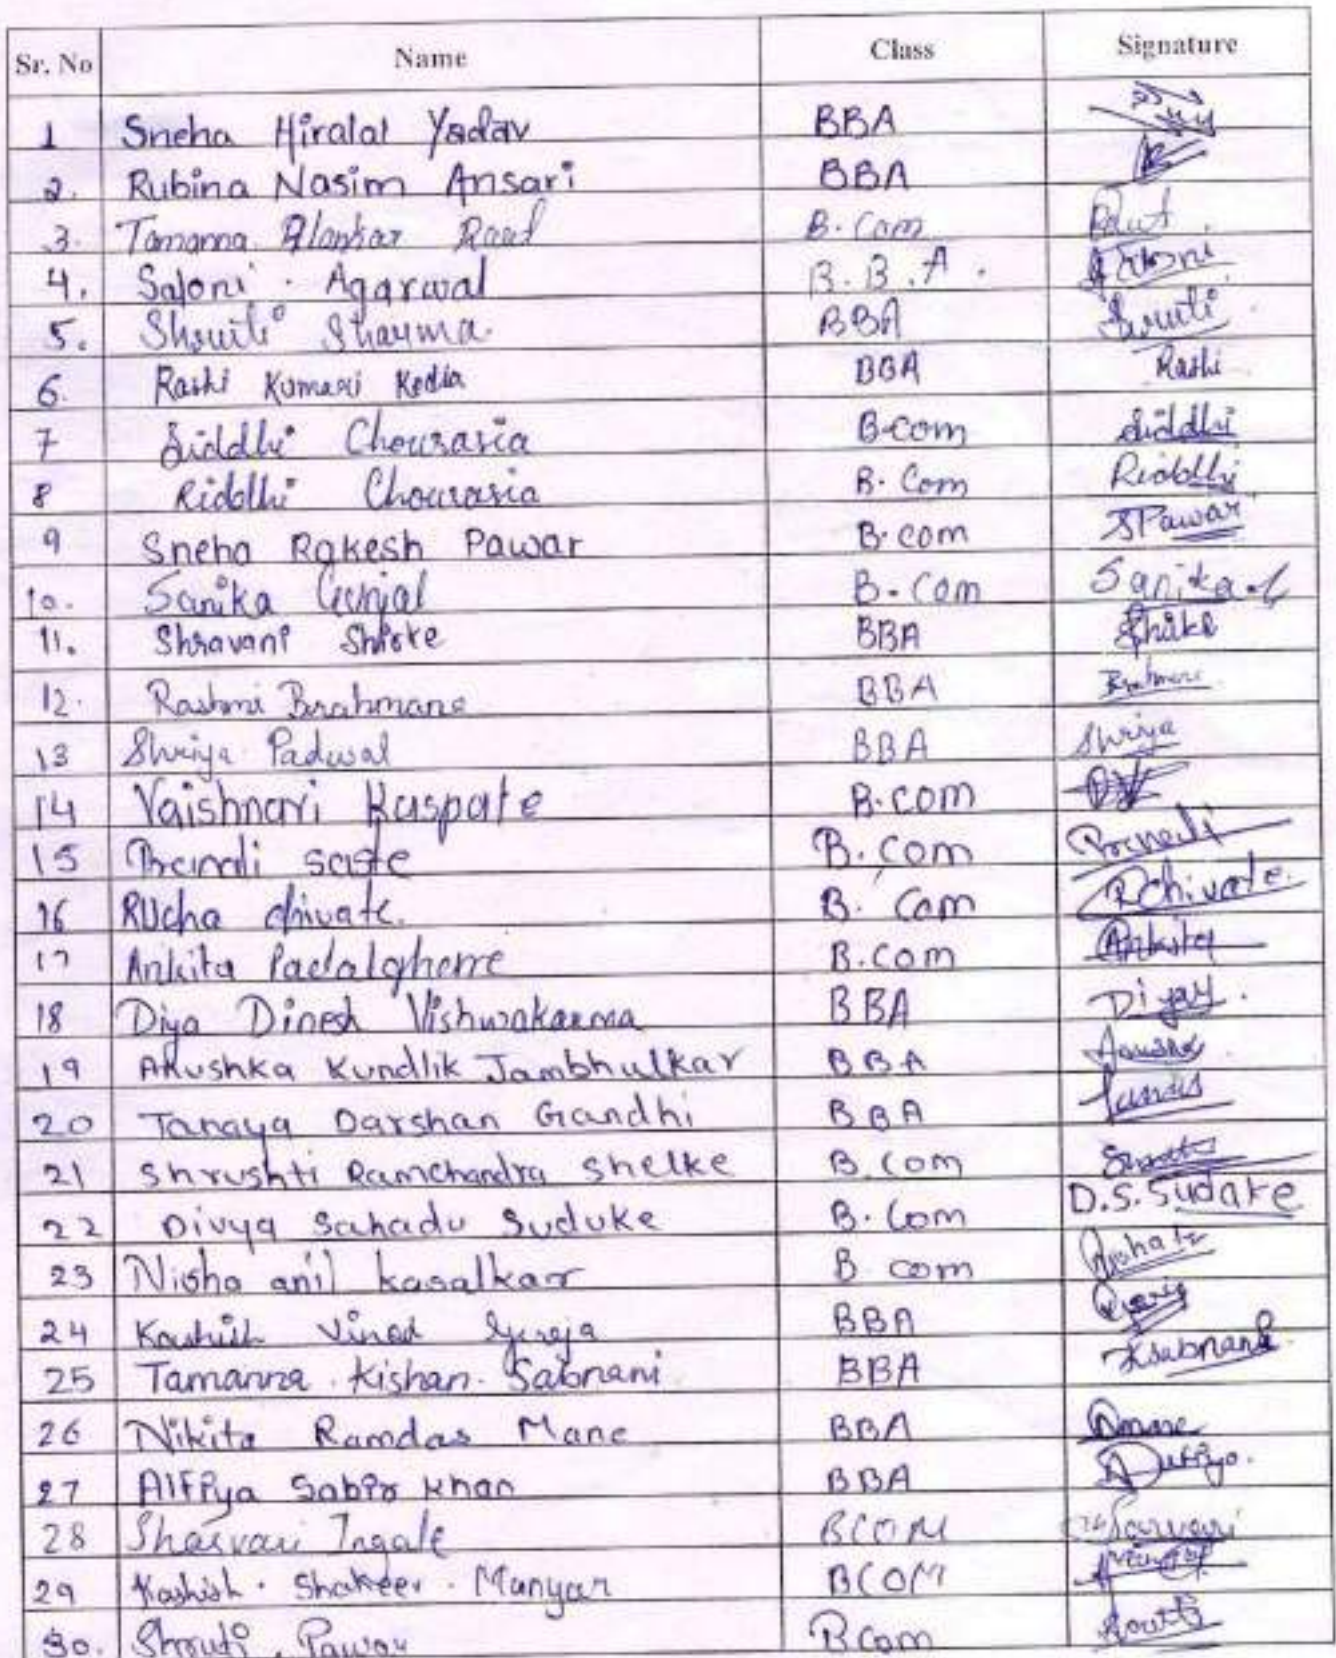 Sr. No Name Class Signature
1 Sneha Hiralal Yadav BBA
2. Rubina Nasim Ansari BBA
3. Tamanna Alankar Raut B.Com Raut.
4. Saloni . Agarwal B.B.A. Saloni
5. Shruti Sharma. BBA Shruti.
6. Rashi Kumari Kedia BBA Rashi
7 Siddhi Chourasia B.com Siddhi
8 Riddhi Chourasia B.Com Riddhi
9 Sneha Rakesh Pawar B.com SPawar
10. Sanika Gunjal B.Com Sanika.G
11. Shravani Shirke BBA Shirke
12. Rashmi Brahmane BBA Brahmane
13 Shriya Padwal BBA Shriya
14 Vaishnavi Kaspate B.com
15 Pranali saste B.com
16 Rucha chivate. B.Com RChivate.
17 Ankita Padalghare B.com Ankita
18 Diya Dinesh Vishwakarma BBA
19 Anushka Kundlik Jambhulkar BBA
20 Tanaya Darshan Gandhi BBA
21 Shrushti Ramchandra Shelke B.Com
22 Divya Sahadu Suduke B.Com D.S.Sudake
23 Nisha anil kasalkar B com
24 Kashish Vinod BBA
25 Tamanna . Kishan . Sabnani BBA
26 Nikita Ramdas Mane BBA
27 Alfiya Sabir Khan BBA
28 Sharvari Ingale BCOM
29 Kashish . Shakeer . Manyar BCOM
30. Shruti . Pawar BCom